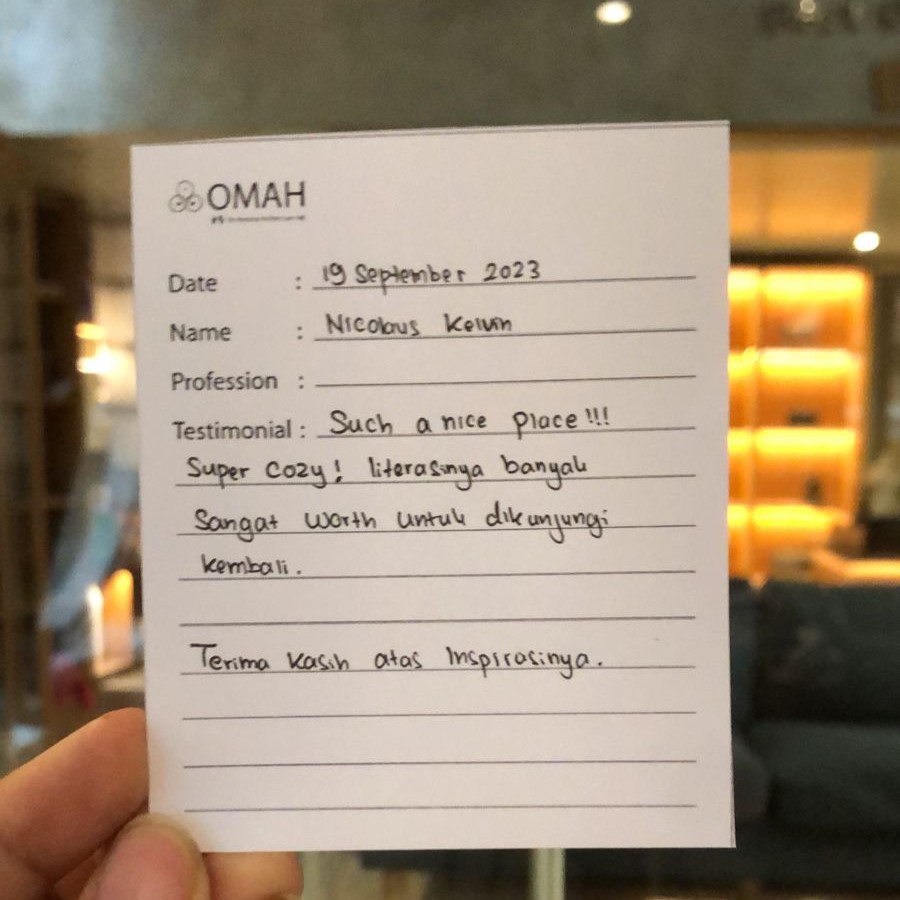 OMAH
Date : 19 September 2023
Name : Nicolaus Kelvin
Profession :
Testimonial : Such a nice place!!!
Super cozy! literasinya banyak
Sangat worth untuk dikunjungi
kembali.
Terima kasih atas Inspirasinya.